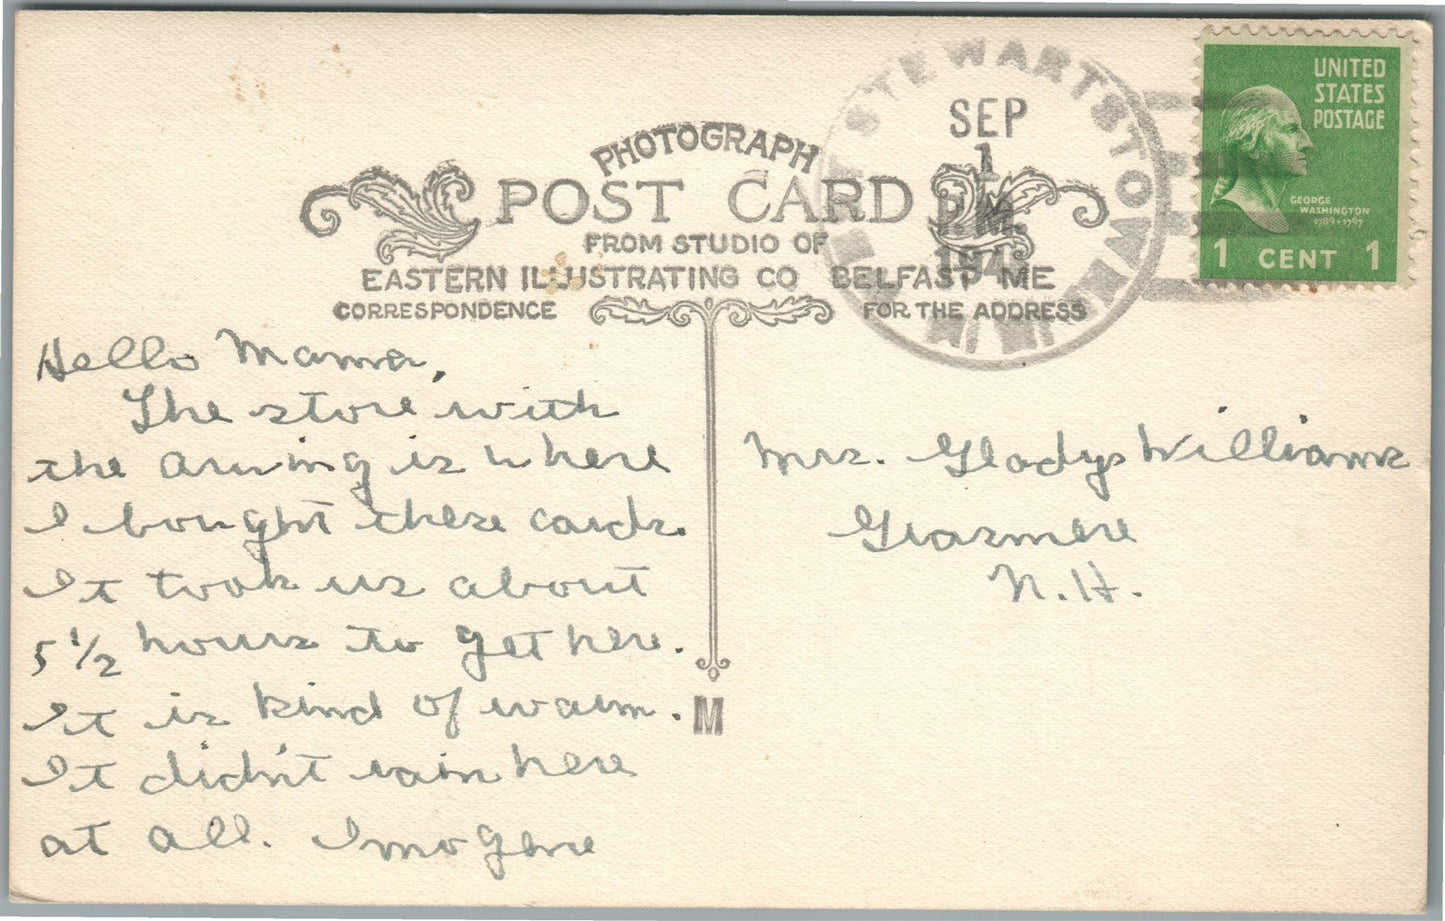 PHOTOGRAPH
POST CARD
FROM STUDIO OF
EASTERN ILLUSTRATING CO BELFAST ME
CORRESPONDENCE
FOR THE ADDRESS
STEWARTSTOWN
SEP
1
P.M.
UNITED
STATES
POSTAGE
GEORGE
WASHINGTON
1789-1797
1 CENT 1
Hello Mama,
The store with
the awning is where
I bought these cards.
It took us about
5 1/2 hours to get here.
It is kind of warm.
It didn't rain here
at all. Imogene
M
Mrs. Gladys Williams
Grasmere
N.H.